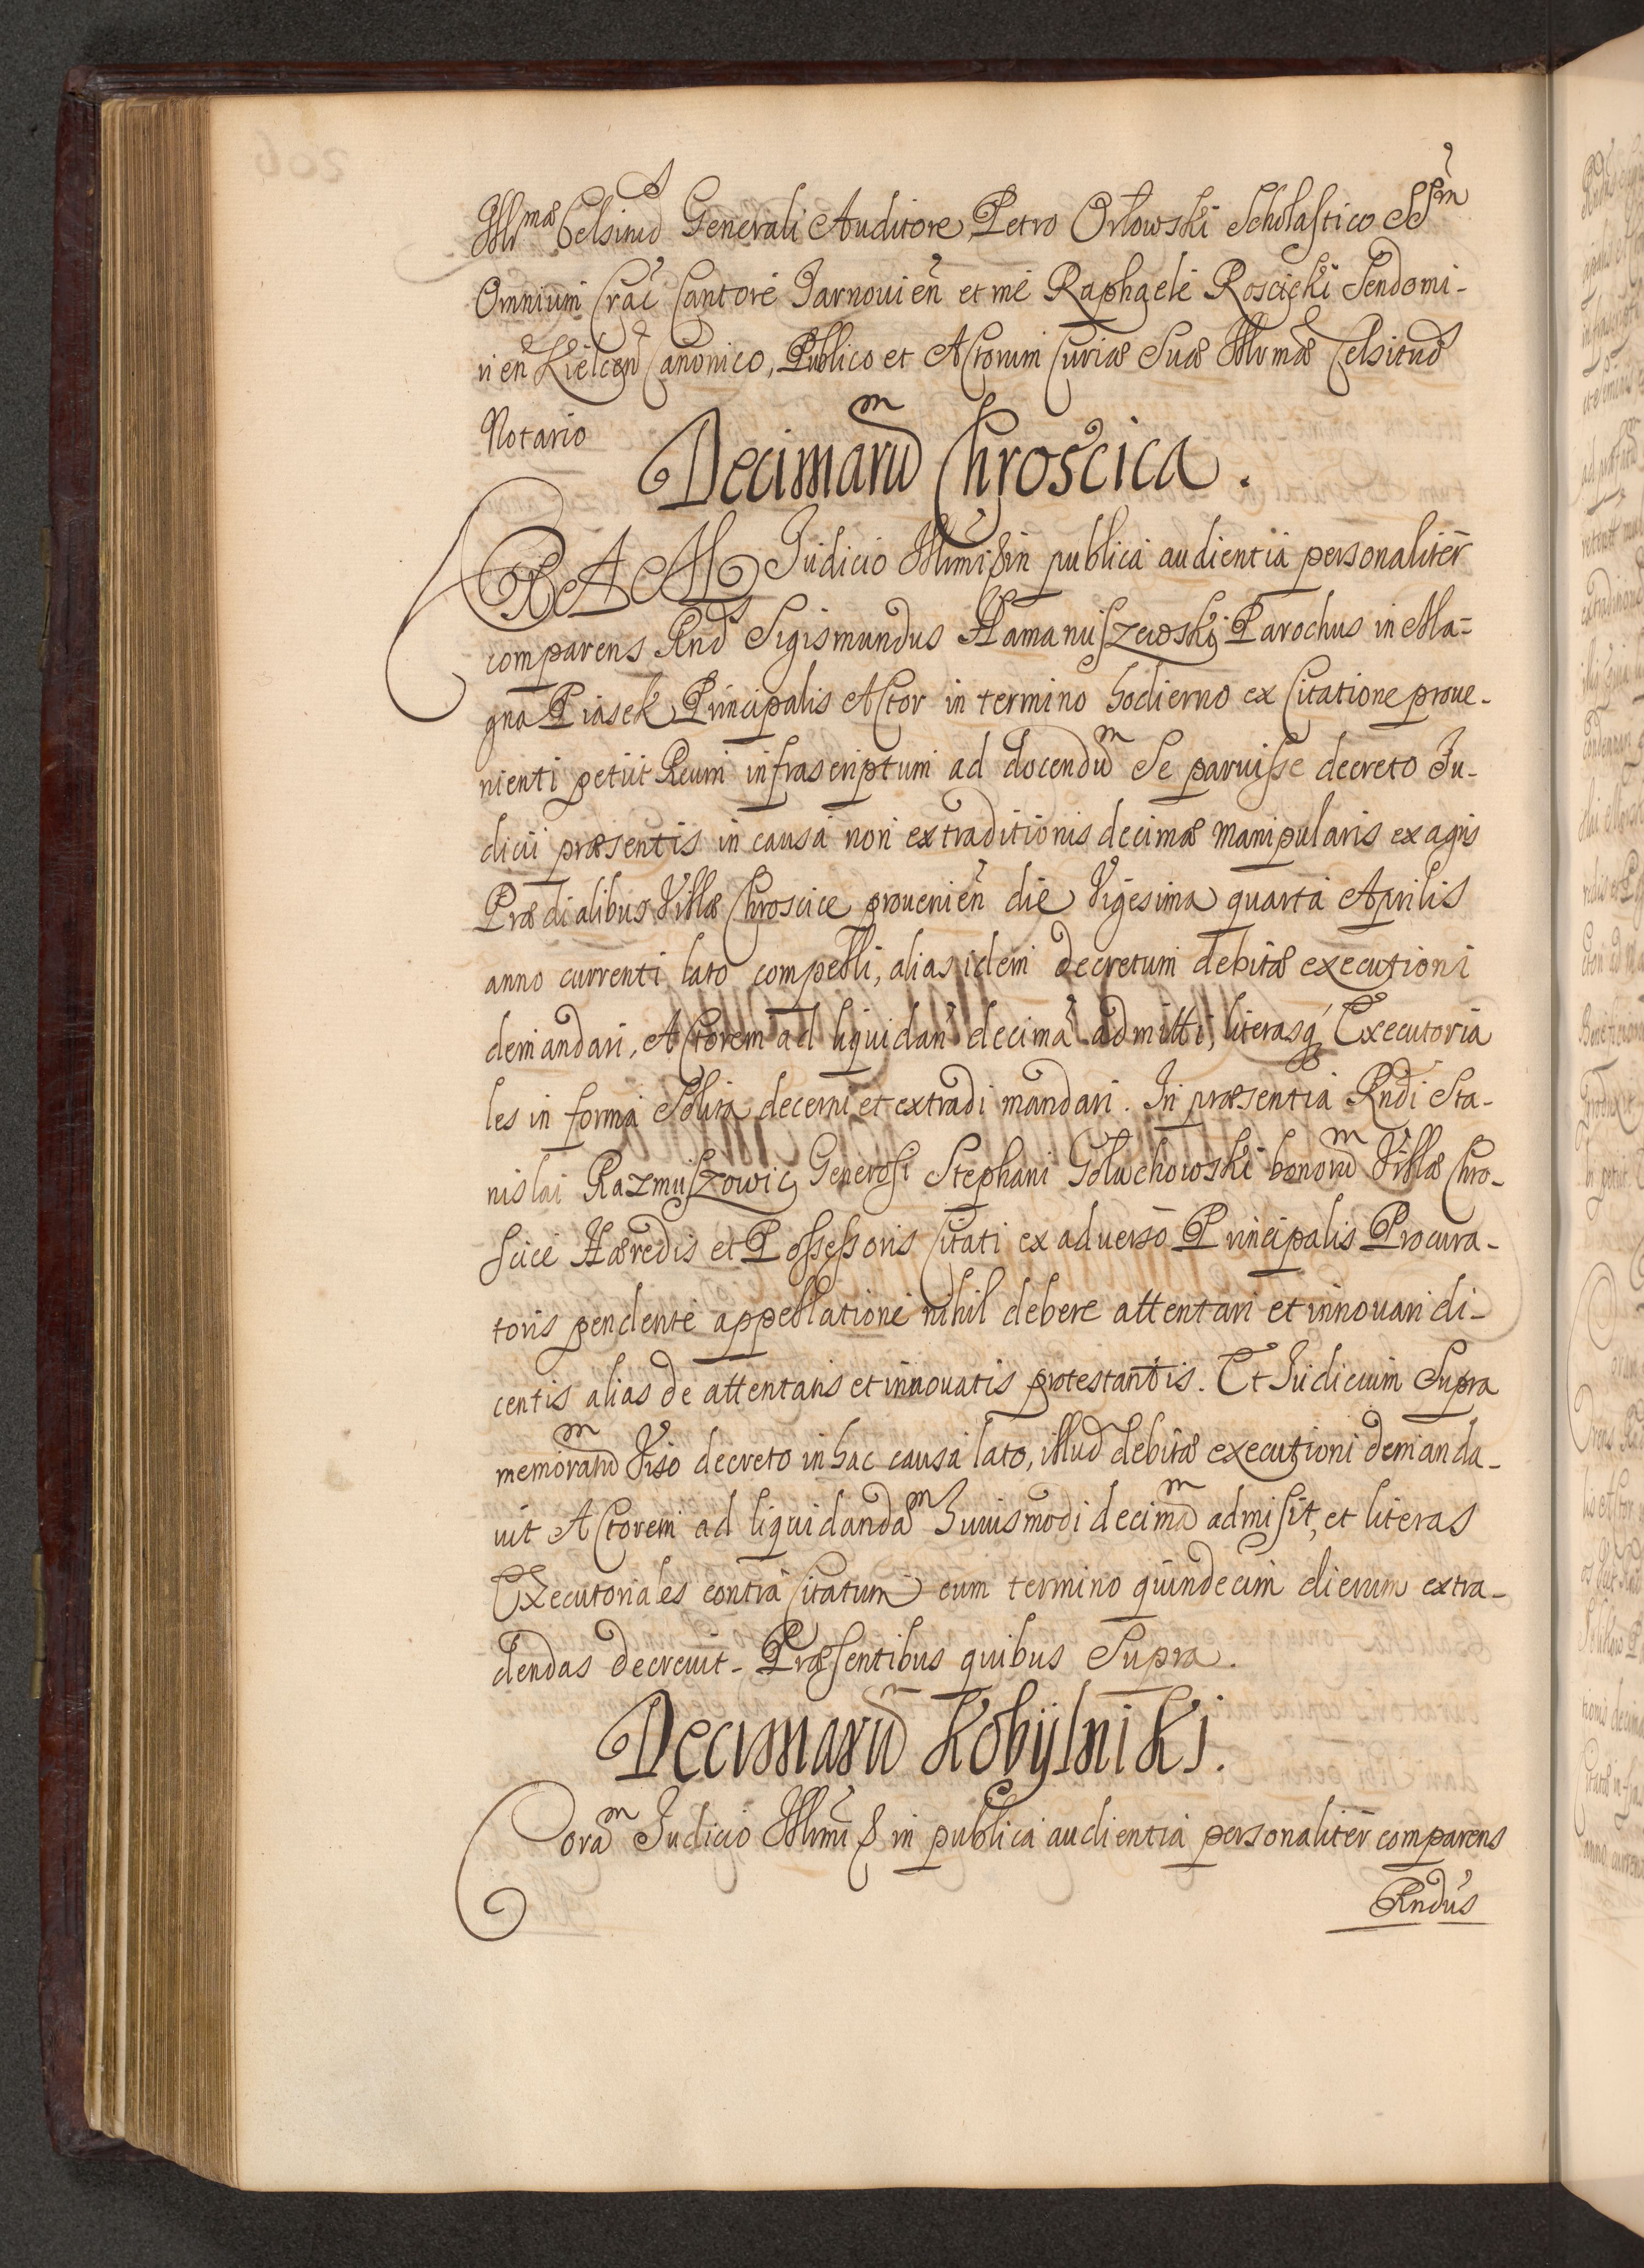 Illrmæ Celsitud Generali Auditore, Petro Orłowski Scholastico SSm
Omnium Crac Cantore Tarnovien et me Raphaele Roscicki Sendomi-
rien Kielcen Canonico, Publico et Actorum Curiæ Suæ Illrmæ Celsitud
Notario
Decimarum Chroscica.
CORAM Judicio Illrmi & in publica audientia personaliter
comparens Rnd Sigismundus Hamanuszewski Parochus in Ma-
gna Piasek Principalis Actor in termino hodierno ex Citatione prove-
nienti petiit Reum infrascriptum ad docendum Se paruisse decreto Ju-
dicii præsentis in causa non extraditionis decimæ manipularis ex agris
Prædialibus Villæ Chroscice provenien die Vigesima quarta Aprilis
anno currenti lato compelli, alias idem decretum debitæ executioni
demandari, Actorem ad liquidan decima admitti, literasq Executoria
les in forma Solita decerni et extradi mandari. In præsentia Rndi Sta-
nislai Razmuszowic Generosi Stephani Goluchowski bonorum Villæ Chro-
scice Hæredis et Possessoris Citati ex adverso Principalis Procura-
toris pendente appellatione nihil debere attentari et innovari di-
centis alias de attentatis et innovatis protestantis. Et Judicium Supra
memoratum Viso decreto in hac causa lato, illud debitæ executioni demanda-
vit Actorem ad liquidandam huiusmodi decimam admisit, et literas
Executoriales contra Citatum cum termino quindecim dierum extra-
dendas decrevit - Præsentibus quibus Supra.
Decimarum Kobylniki.
Coram Judicio Illrmi & in publica audientia personaliter comparens
Rndus